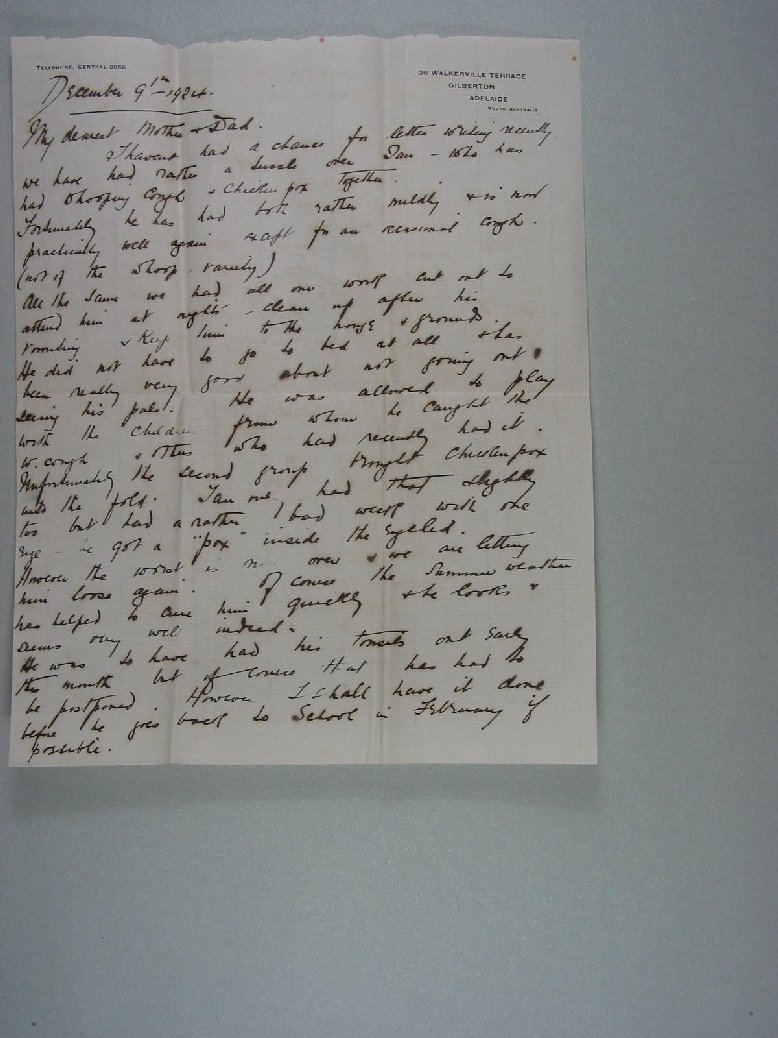 TELEPHONE, CENTRAL
36 WALKERVILLE TERRACE
GILBERTON
ADELAIDE
SOUTH AUSTRALIA
December 9th - 1924.
My dearest Mother & Dad.
I havent had a chance for letter writing recently
we have had rather a tussle over Ian - who has
had Whooping Cough & Chicken pox together.
Fortunately he has had both rather mildly & is now
practically well again except for an occasional cough.
(not of the whoop variety)
All the same we had all our work cut out to
attend him at night - clean up after his
vomiting & Keep him to the house & grounds.
He did not have to go to bed at all & has
been really very good about not going out
seeing his pals. He was allowed to play
with the children from whom he caught the
w. cough & others who had recently had it.
Unfortunately the second group brought Chicken pox
into the fold. Ian only had that slightly
too but had a rather bad week with one
eye - he got a "pox" inside the eyelid.
However the worst is now over & we are letting
him loose again. Of course the Summer weather
has helped to cure him quickly & he looks &
seems very well indeed.
He was to have had his tonsils out early
this month but of course that has had to
be postponed. However I shall have it done
before he goes back to School in February if
possible.